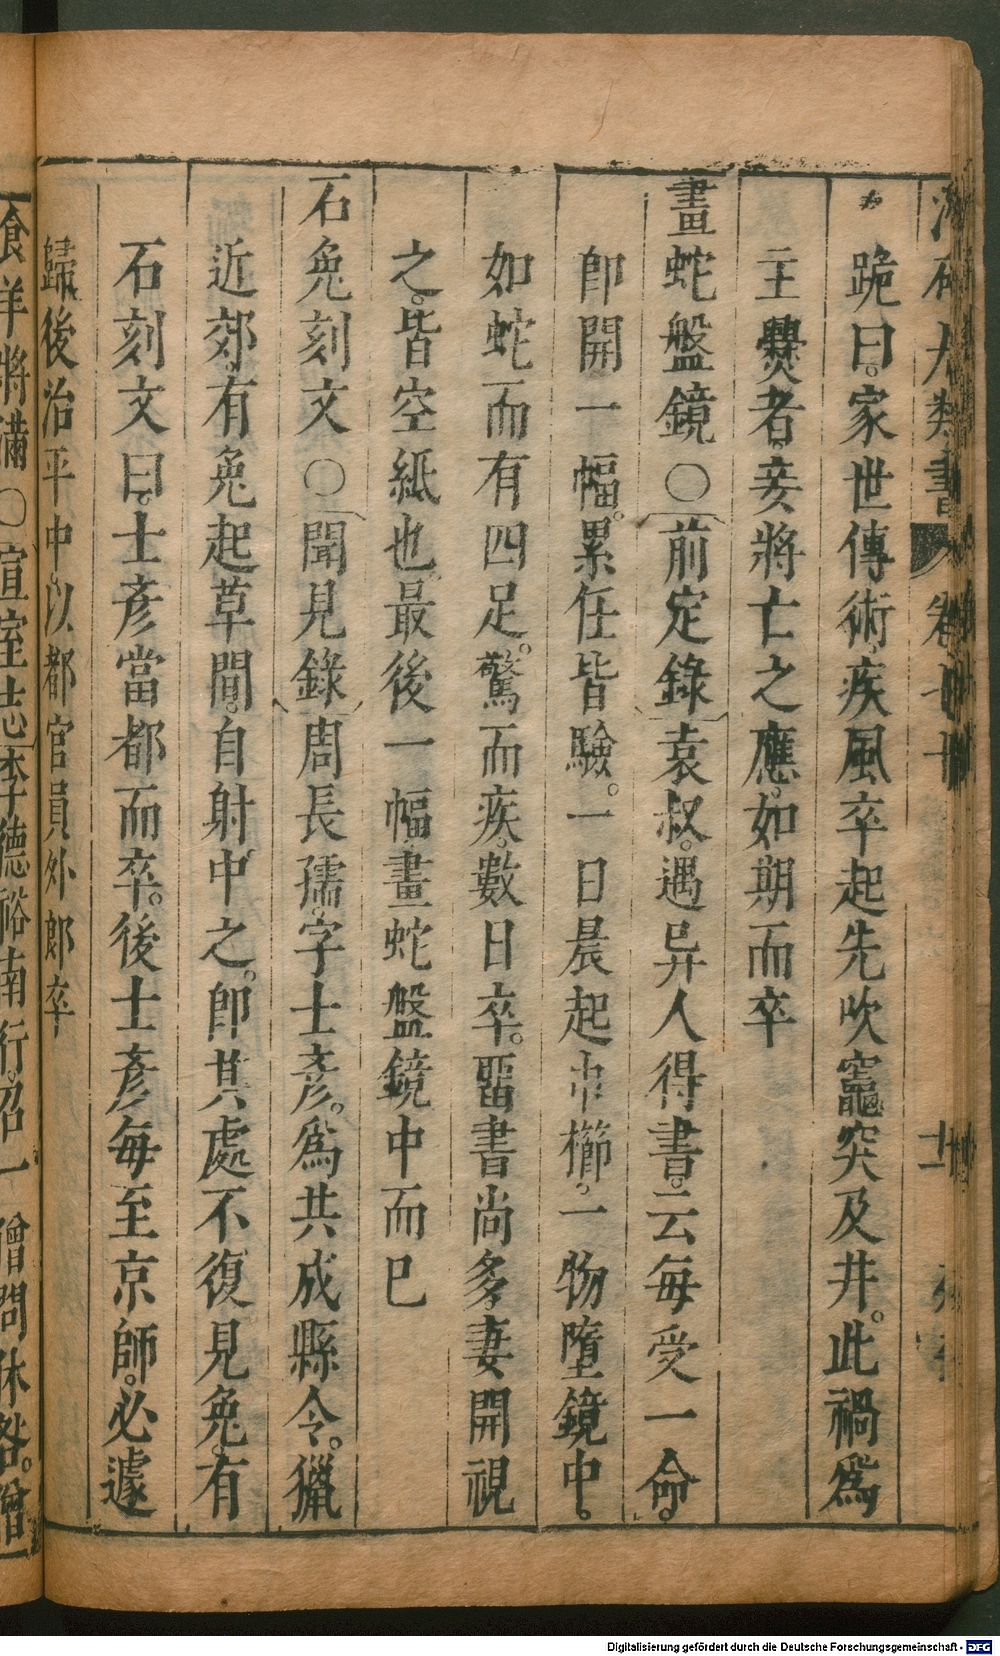 跪曰家世傳術疾風卒起先吹竈突及井。此禍爲
主爨者。妾將亡之應。如期而卒
畫蛇盤鏡〇前定錄袁叔。遇异人得書。云每受一命。
卽開一幅。累任皆驗。一日晨起巾櫛。一物墮鏡中。
如蛇而有四足。驚而疾。數日卒。畱書尚多。妻開視
之。皆空紙也。最後一幅畫蛇盤鏡中而巳
石兔刻文〇聞見錄周長孺。字士彥。爲共成縣令。獵
近郊。有兔起草間。自射中之。卽其處不復見兔。有
石刻文曰。士彥當都而卒。後士彥每至京師。必遽
歸。後治平中。以都官員外郎卒
食羊將滿〇宣室志李德裕南行。召一僧問休咎。僧
Digitalisierung gefördert durch die Deutsche Forschungsgemeinschaft - DFG